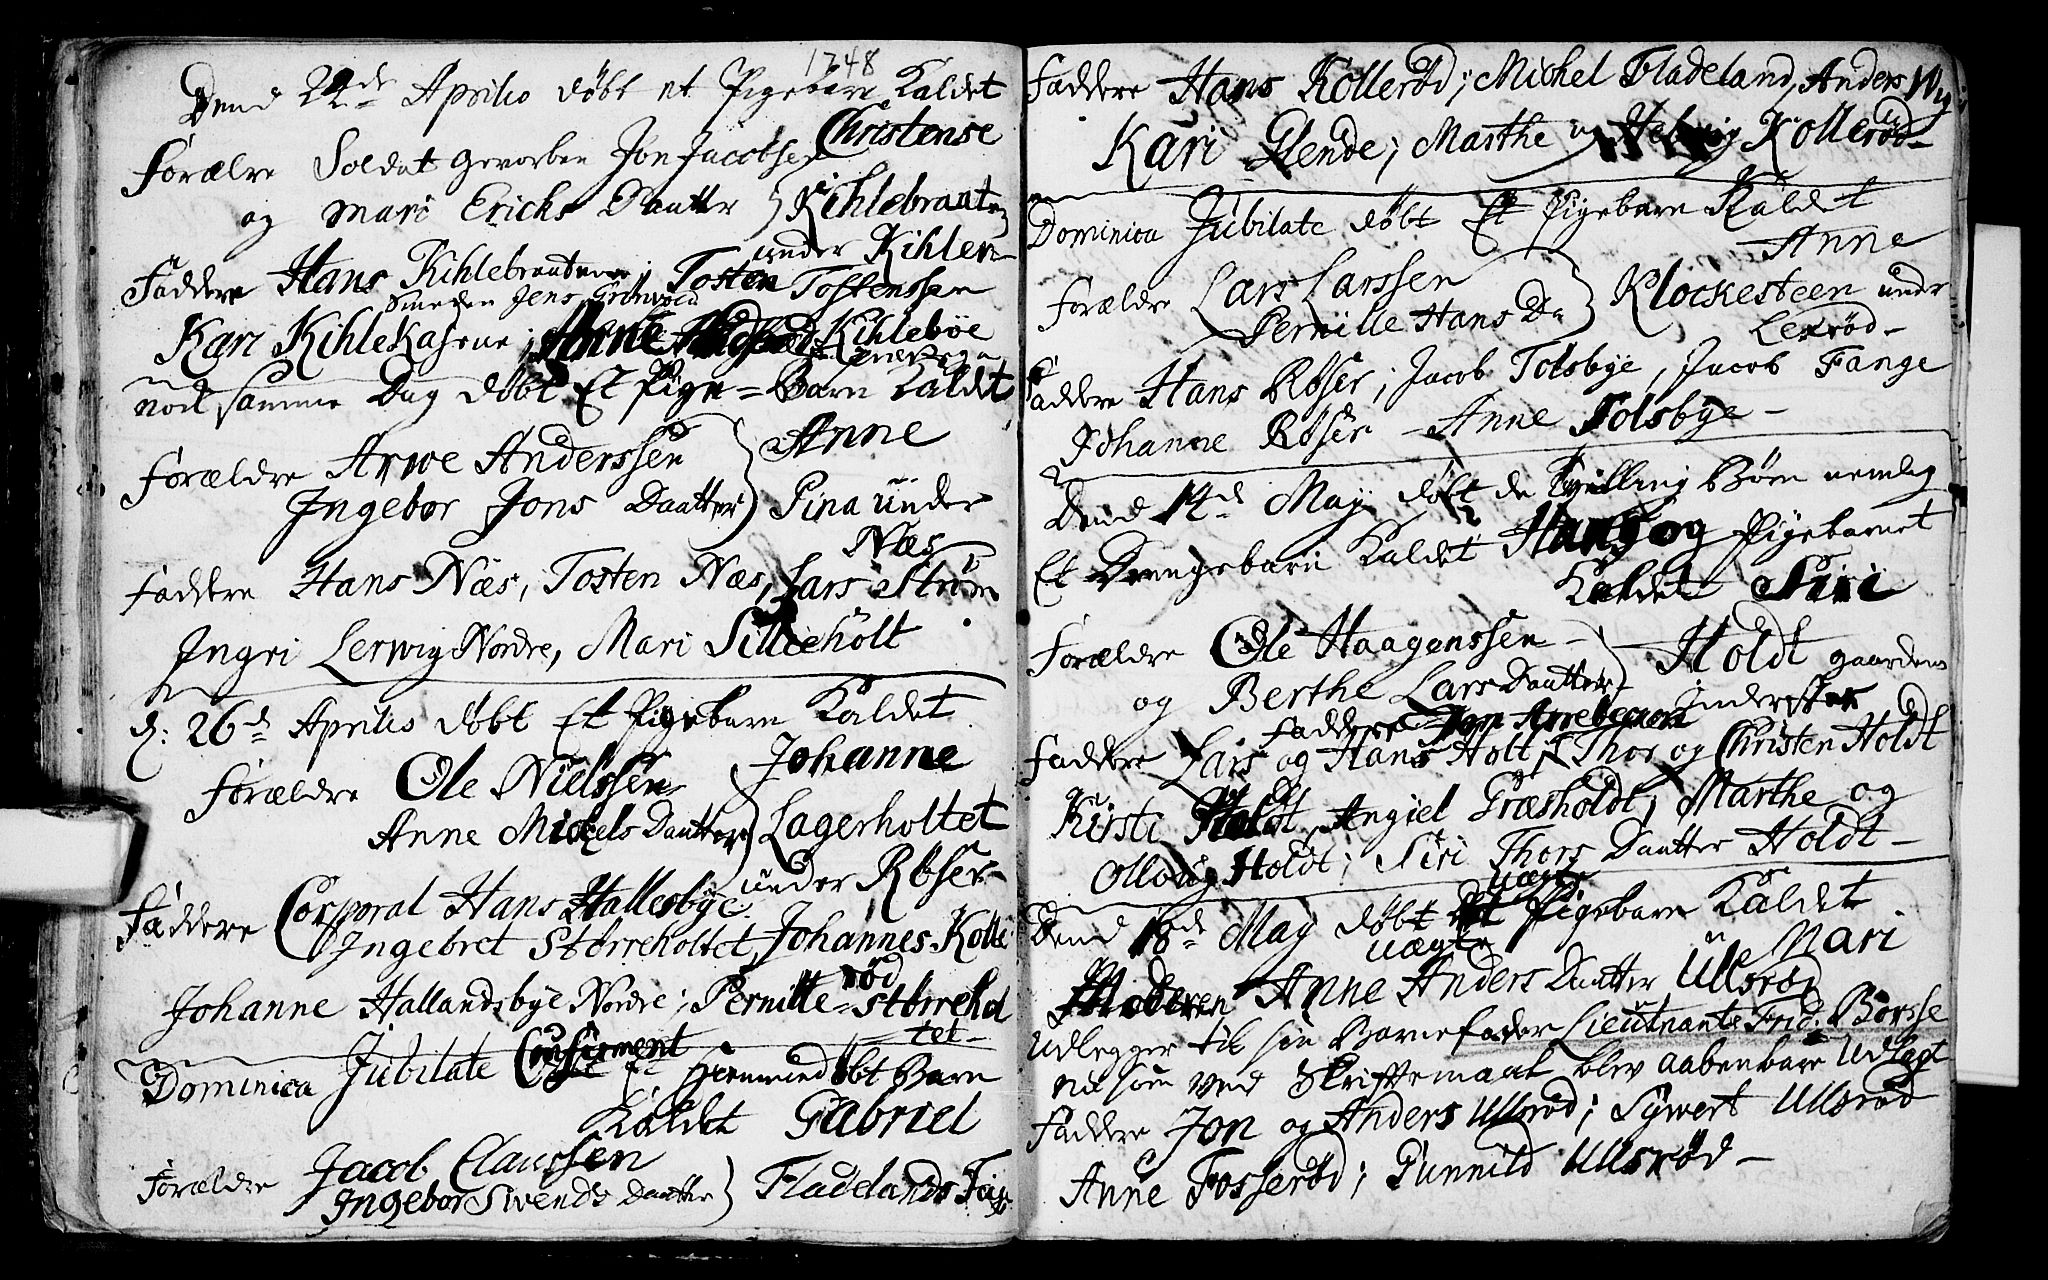 1748
Dend 22de Aprilis döbt et Pigebarn Kaldet
Christense
Forældre Soldat gevorben Jon Jacobsen
og Mari Erichs Daatter } Kihlebraaten
under Kihlen
Faddere Hans Kihlebraatene; Tosten Tostenssen
Smeden Jens Grönvold
Kari Kihlekasene; Anne Kihleböe
nock samme Dag döbt Et Pige-Barn Kaldet
Anne
Forældre Arwe Anderssen
Ingebor Jons Daatter } Pina under
Næs
Faddere Hans Næs, Tosten Næs, Lars Ström
Ingri Lerwig Nordre, Mari Sillieholt
d: 26de Aprilis döbt Et Pigebarn Kaldet
Johanne
Forældre Ole Nielssen
Anne Mickels Daatter } Lagerholtet
under Röser
Faddere Corporal Hans Hallesbye
Ingebret Störreholtet, Johannes Kolle
röd
Johanne Hallandsbye Nordre; Pernille Störrehol
tet
Dominica Jubilate Confirment Et hiemmedöbt Barn
Kaldet Gabriel
Forældre Jacob Claussen
Ingebor Swends Daatter } Fladelands
Faddere Hans Kolleröd; Michel Fladeland, Anders Wiig
Kari Glende; Marthe og Helwig Kolleröd
Dominica Jubilate döbt Et Pigebarn Kaldet
Anne
Forældre Lars Larssen
Pernille Hans Da } Klockesteen under
Lexröd
Faddere Hans Röser; Jacob Tolsbye, Jacob Fange
Johanne Röser Anne Tolsbye
Dend 14de May döbt de Tvilling Börn nemlig
Et Drengebarn Kaldet Hans og Pigebarnet
Kaldet Siri
Forældre Ole Haagenssen
og Berthe Lars Daatter } Holdt gaardens
Inderster
Faddere Lars og Hans Holt Thor og Christen Holdt
Kirsti Holdt, Angiel Græsholdt, Marthe og
Olloug Holdt; Siri Thors Daatter Holdt
Dend 18de May döbt uægte Pigebarn Kaldet
Mari
uægte
Moderen Anne Anders Daatter Ullsröd
Udlegger til sin Barnefader Lieutnante Frid: Borsse
som ved Skriftemaal blev aabenbare Udlagt
Faddere Jon og Anders Ullsröd; Sywert Ullsröd
Anne Fosseröd; Gunnild Ullsröd